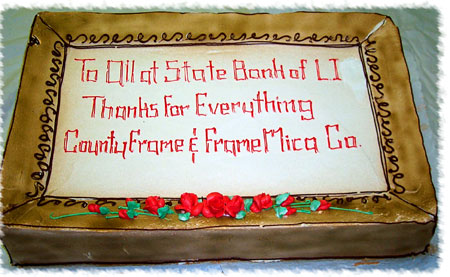 To All at State Bank of LI
Thanks For Everything
County Frame & Frame Mica Co.